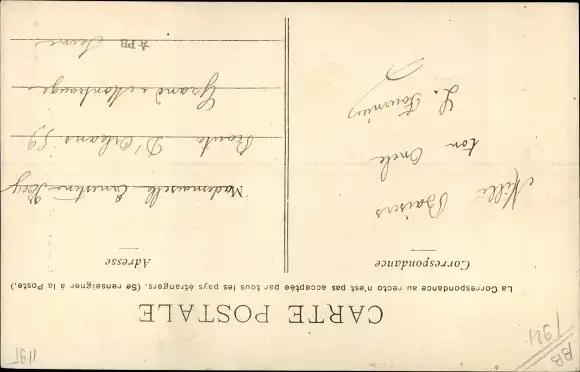 CARTE POSTALE
La Correspondance au recto n'est pas acceptée par tous les pays étrangers. (Se renseigner à la Poste.)
Correspondance
Mille Baisers
ton Oncle
L. Fournier
Adresse
Mademoiselle Ernestine
Route D'Orléans 59
Grand Montrouge
Seine
PB
BB